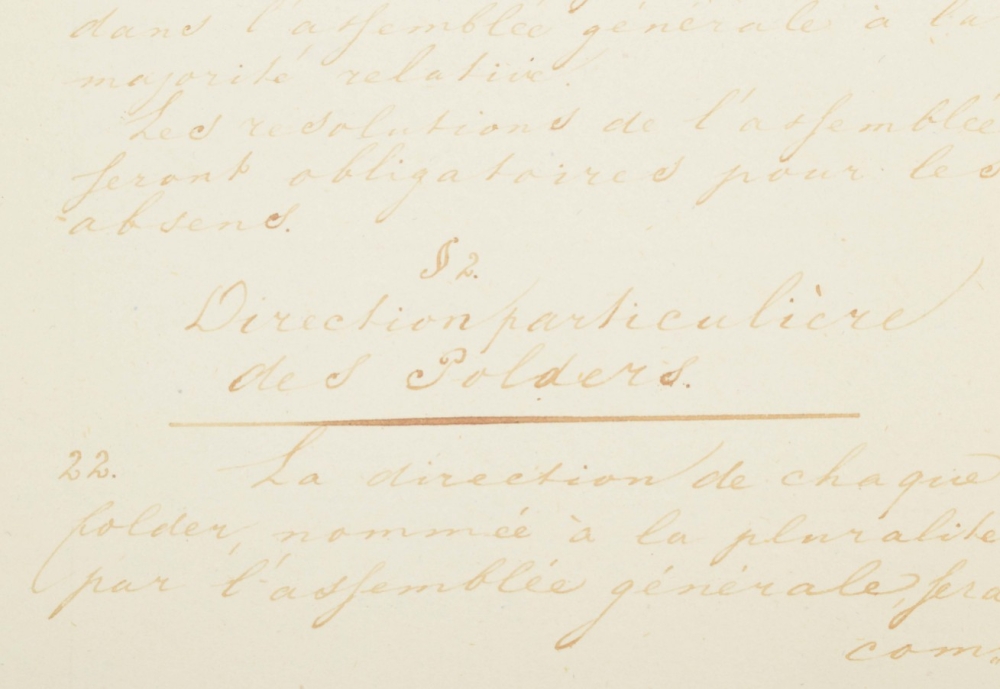 dans l'assemblée générale à la
majorité relative.
Les resolutions de l'assemblée
seront obligatoires pour les
absens.
§ 2.
Direction particulière
des Polders.
22. La direction de chaque
polder, nommée à la pluralité
par l'assemblée générale, sera
com